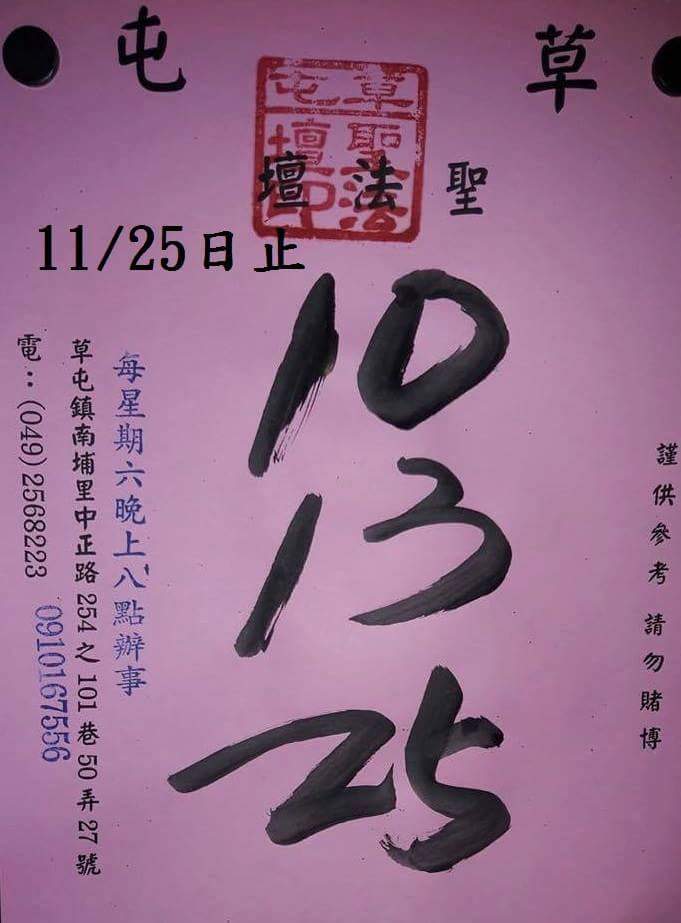 草屯
聖法壇
草屯
聖法
壇印
11/25日止
10
13
25
謹供參考 請勿賭博
每星期六晚上八點辦事
草屯鎮南埔里中正路254之101巷50弄27號
電：(049)2568223
0910167556